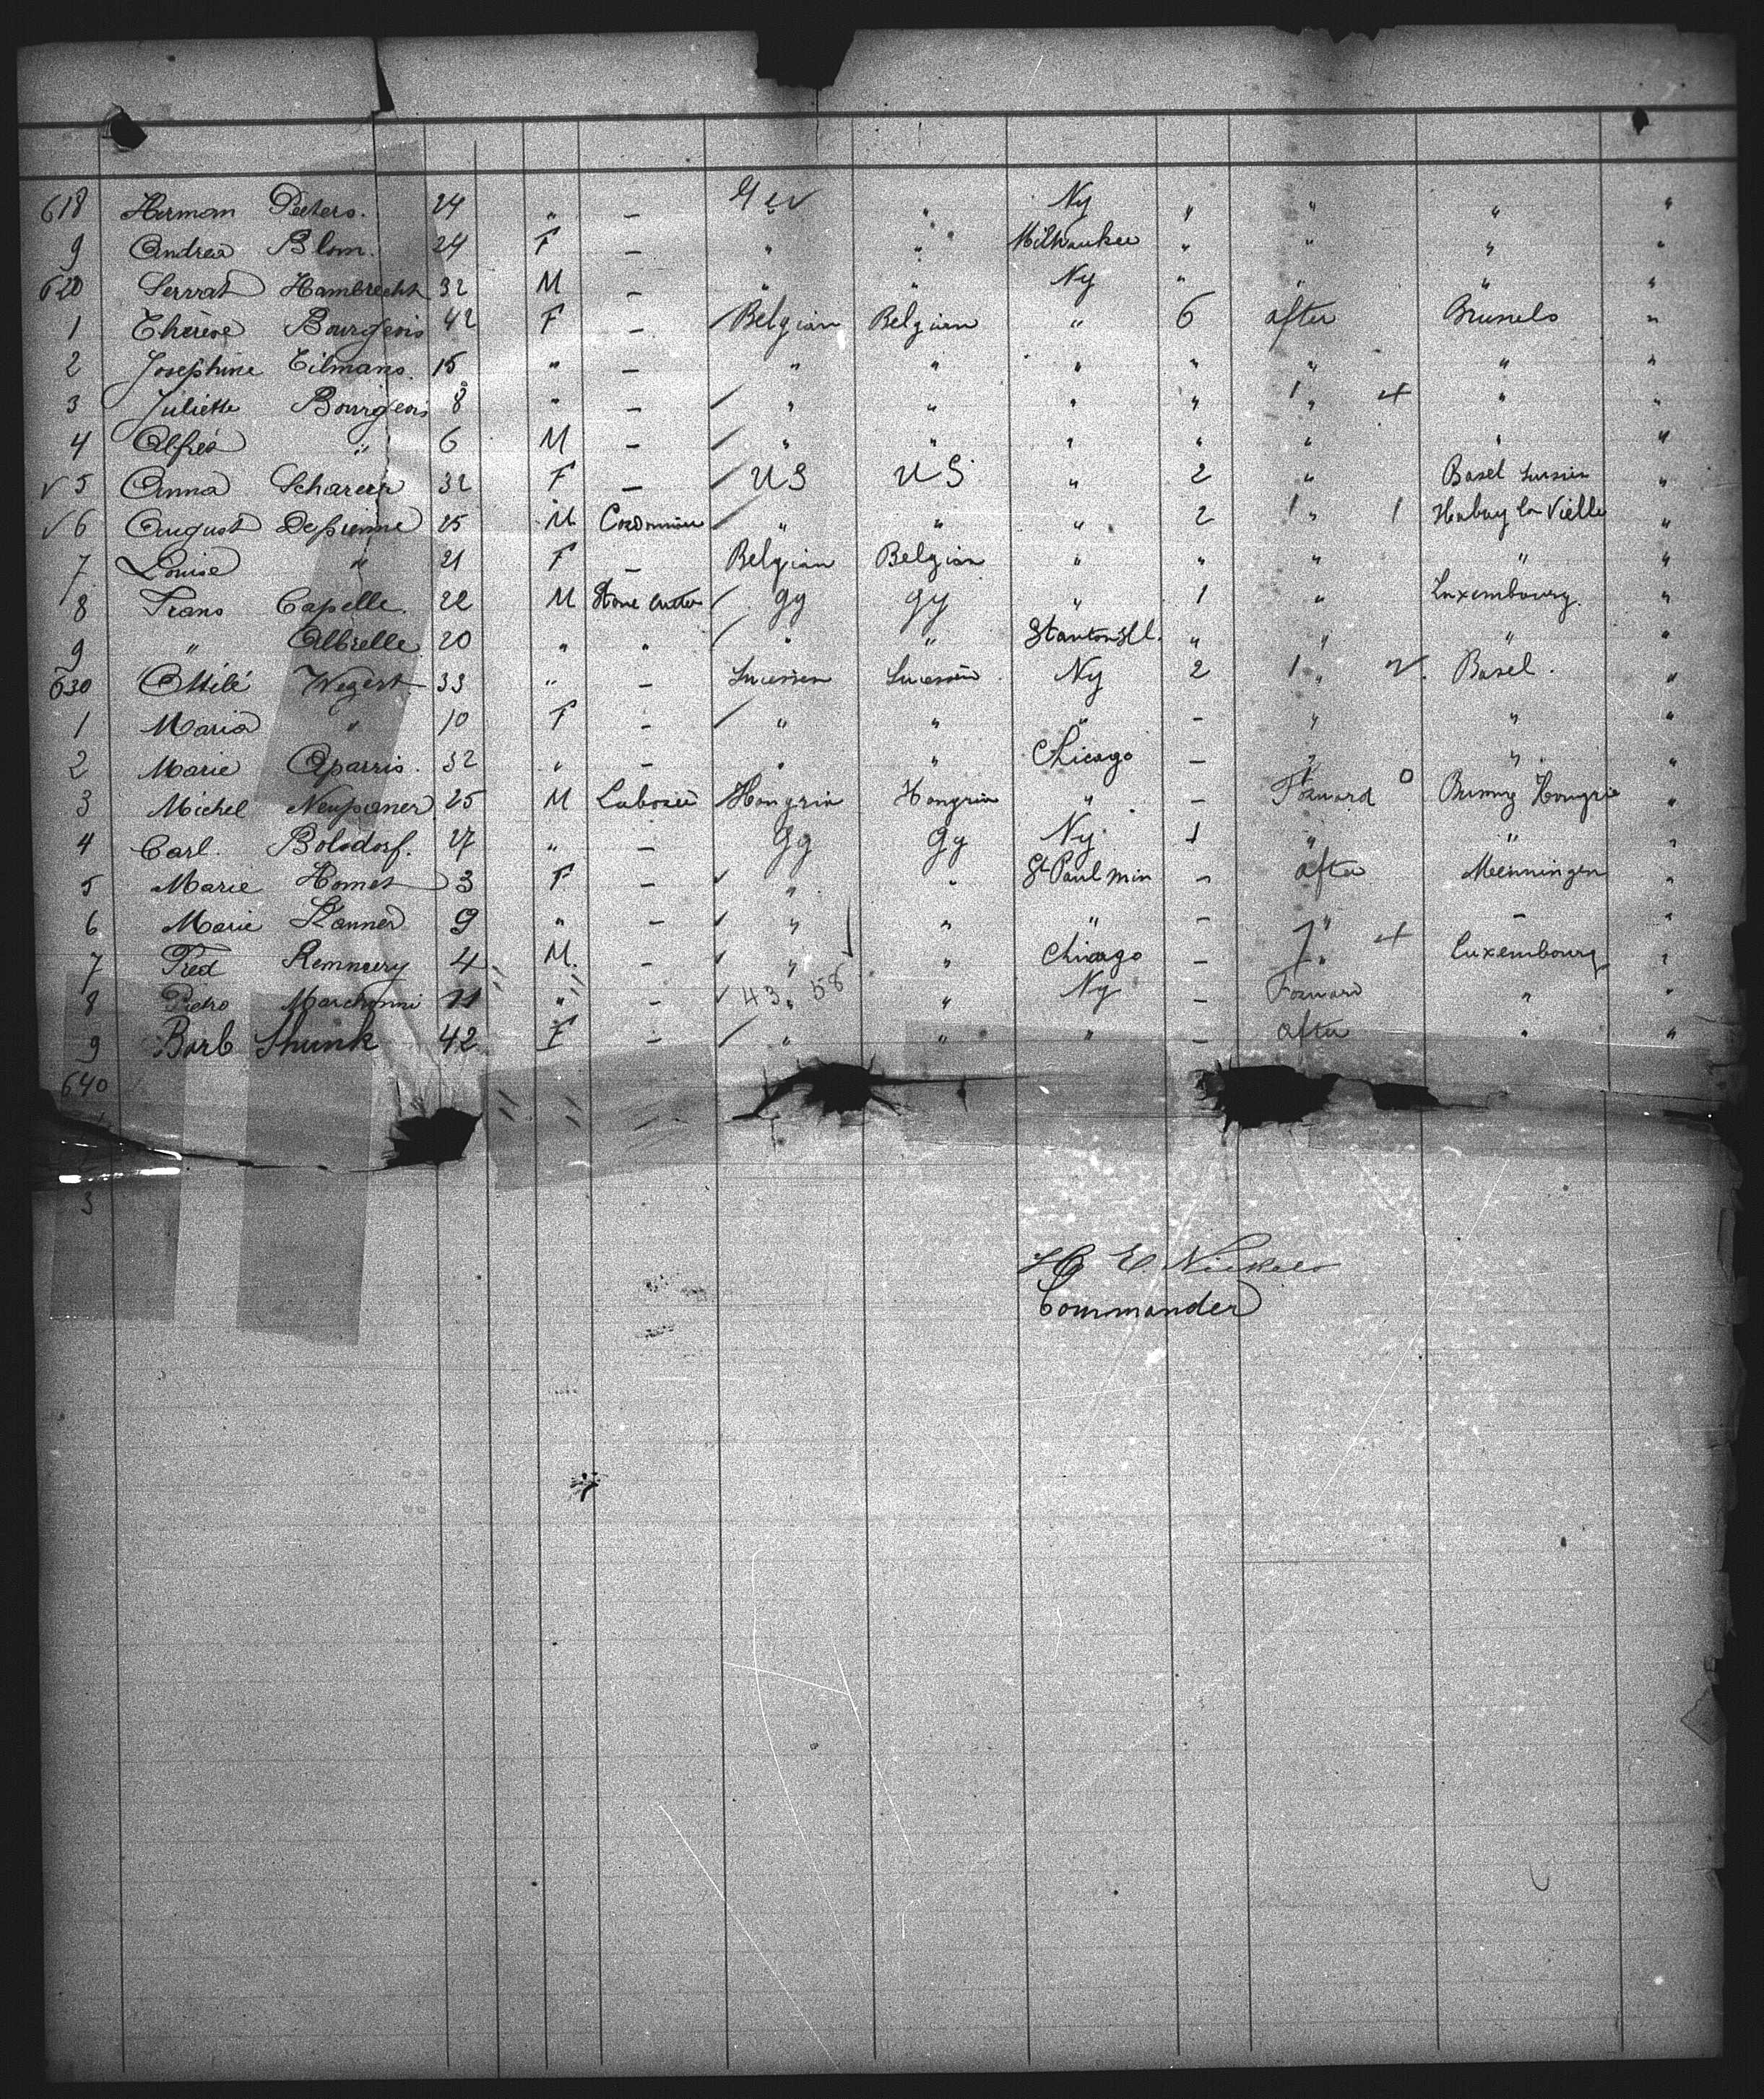 618 Herman Peeters. 24 " — Ger " Ny " " " "
9 Andrea Blom. 24 F — " " Milwaukee " " " "
620 Servat Hambrecht 32 M — " " Ny " " " "
1 Therese Bourgeois 42 F — Belgian Belgian " 6 after Brussels "
2 Josephine Tilmans 15 " — " " " " " " "
3 Juliette Bourgeois 8 " — " " " " " " "
4 Alfred " 6 M — " " " " " " "
5 Anna Scharer 32 F — US US " 2 " Basel "
6 August 25 M " " " 2 " 1 Habay la Vielle "
7 Louise " 21 F — Belgian Belgian " " " " "
8 Frans Capelle. 22 M Stone Cutter gy gy " 1 " Luxembourg. "
9 " Albrelle 20 " " " " Stanton Ill. " " " "
630 Wegert 33 " — Ny 2 " Basel. "
1 Maria " 10 F — " " " — " " "
2 Marie 32 " — " " Chicago — " " "
3 Michel 25 M Hongrie Hongrie " — Forward 0 Hongrie "
4 Carl. Bolsdorf. 27 " — Gg Gg Ny 1 " " "
5 Marie Homes 3 F — " " St Paul Min — after Menningen "
6 Marie 9 " — " " " — " — "
7 Fred 4 M. — " " Chicago — " Luxembourg "
8 Pietro 11 " — 43. 58 " Ny — Forward " "
9 Barb Shunk 42 F — " " " — after " "
640
3
H E Nickels
Commander